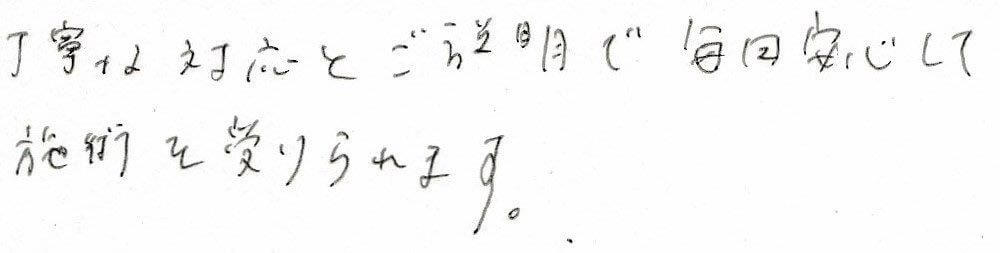 丁寧な対応とご説明で毎回安心して
施術を受けられます。